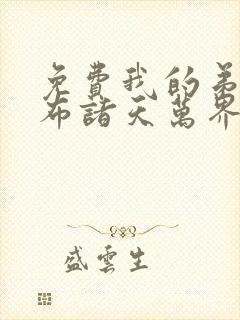 免費我的弟
布諸天萬界
盛雲生